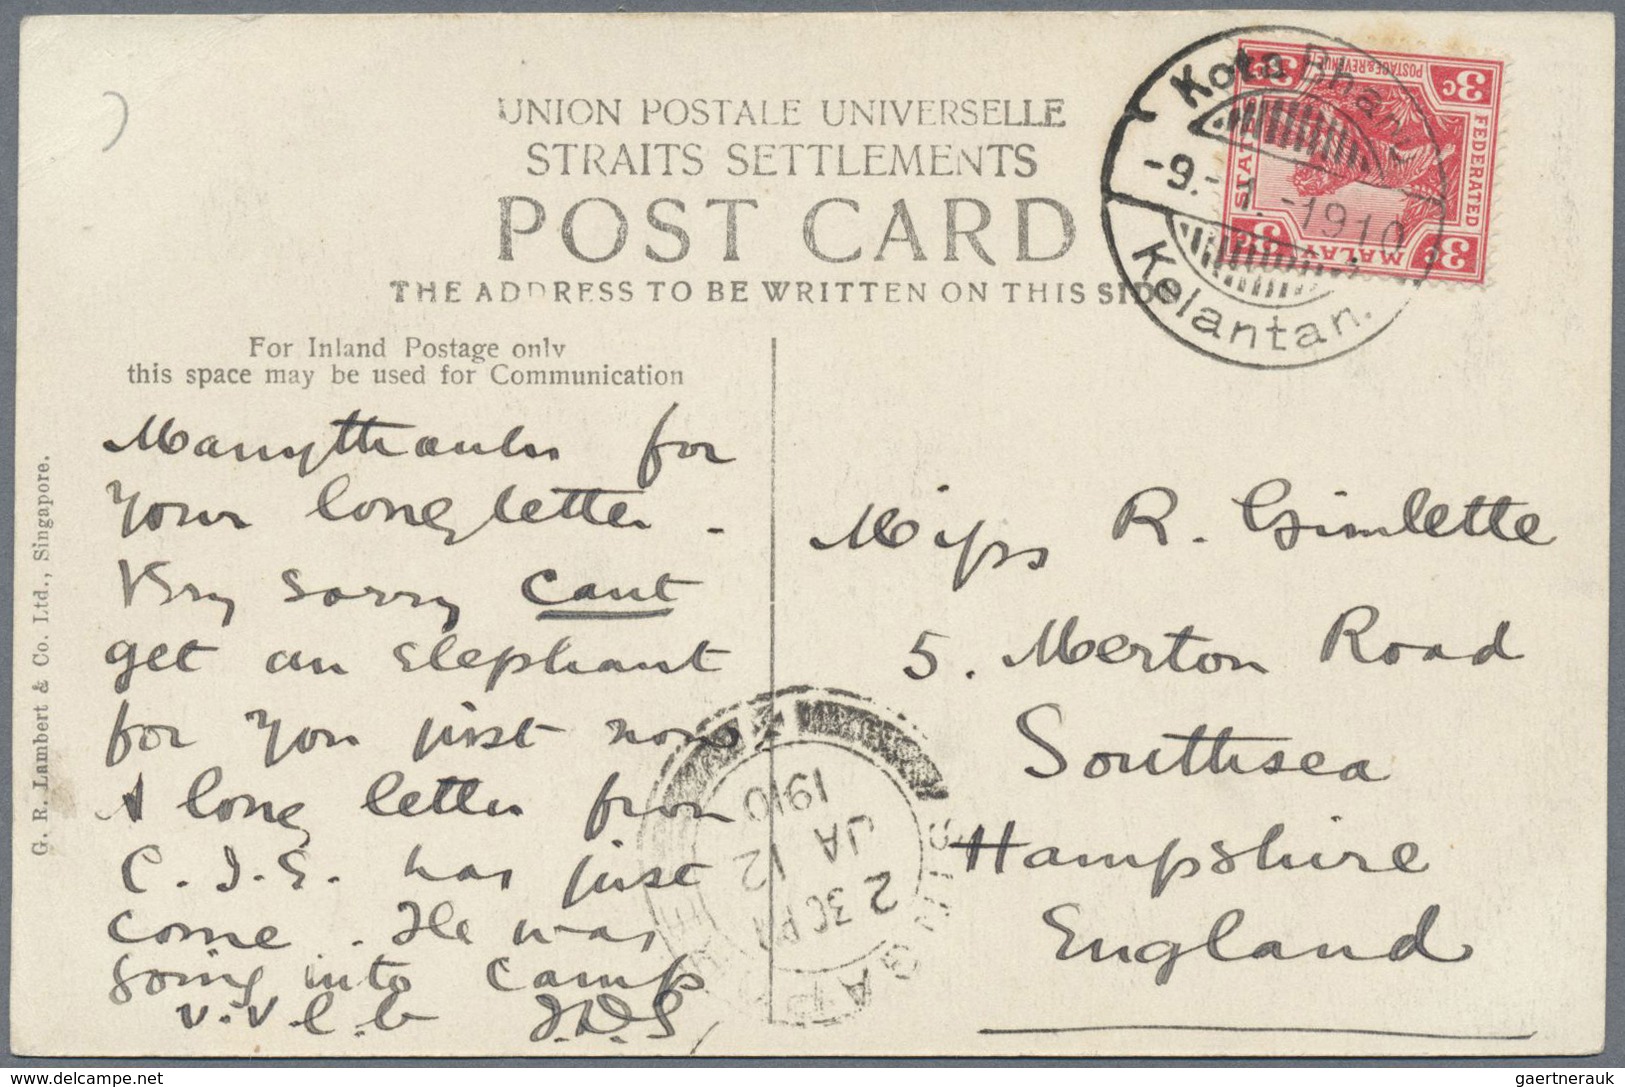 UNION POSTALE UNIVERSELLE
STRAITS SETTLEMENTS
POST CARD
THE ADDRESS TO BE WRITTEN ON THIS SIDE
For Inland Postage only
this space may be used for Communication
G. R. Lambert & Co. Ltd., Singapore.
Many thanks for
your long letter -
Very sorry cant
get an elephant
for you just now
A long letter from
C. J. G. has just
come. He was
going into camp
Miss R. Gimlette
5. Merton Road
Southsea
Hampshire
England
Kota Bharu
-9.-1.-1910
Kelantan.
FEDERATED
MALAY
STATES
POSTAGE & REVENUE
3c
3c
3c
3c
SINGAPORE
2 30 PM
12
JA
1910
gaertnerauk